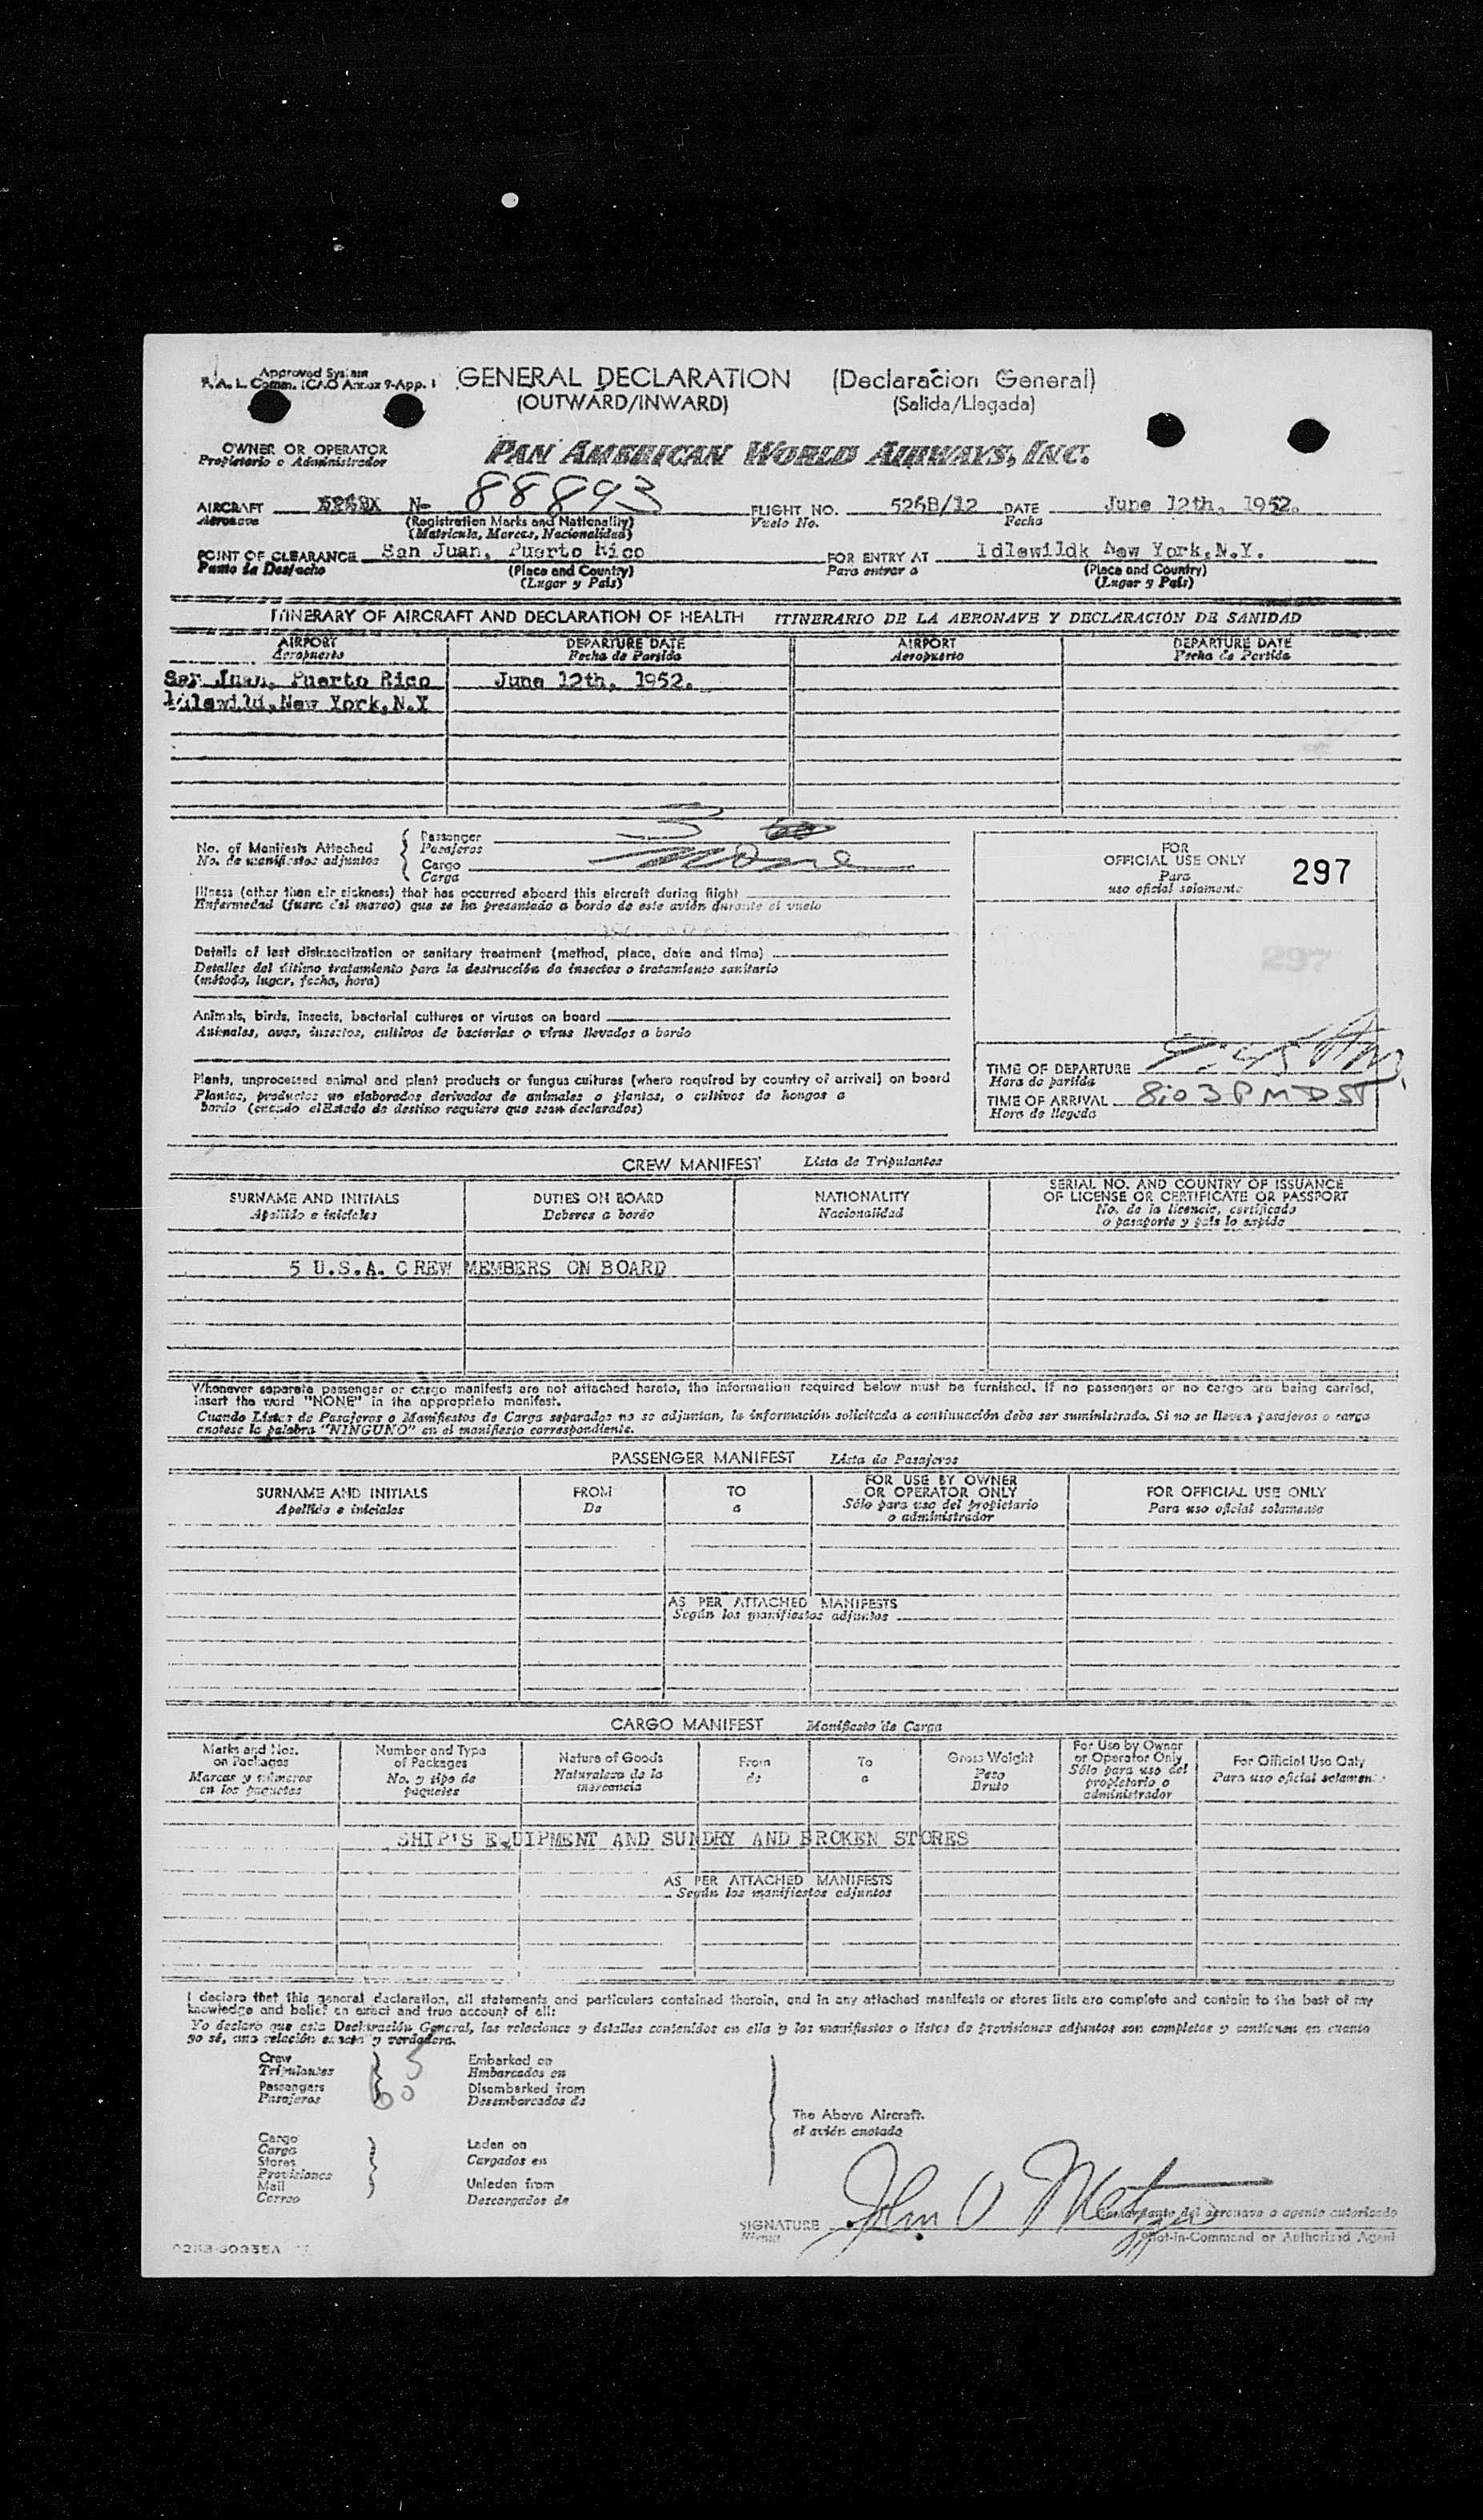 Approved System
F. A. L. Comm. ICAO Annex 9-App. 1
GENERAL DECLARATION (Declaracion General)
(OUTWARD/INWARD) (Salida/Llegada)
OWNER OR OPERATOR
Propietario o Administrador
PAN AMERICAN WORLD AIRWAYS, INC.
AIRCRAFT N- 88893 FLIGHT NO. 526B/12 DATE June 12th, 1952.
Aeronave (Registration Marks and Nationality) Vuelo No. Fecha
(Matricula, Marcas, Nacionalidad)
POINT OF CLEARANCE San Juan, Puerto Rico FOR ENTRY AT Idlewildk New York, N.Y.
Punto de Despacho (Place and Country) Para entrar a (Place and Country)
(Lugar y Pais) (Lugar y Pais)
ITINERARY OF AIRCRAFT AND DECLARATION OF HEALTH ITINERARIO DE LA AERONAVE Y DECLARACIÓN DE SANIDAD
AIRPORT DEPARTURE DATE AIRPORT DEPARTURE DATE
Aeropuerto Fecha de Partida Aeropuerto Fecha de Partida
San Juan, Puerto Rico June 12th, 1952.
Idlewild, New York, N.Y
No. of Manifests Attached
No. de manifiestos adjuntos
Passenger 3
Pasajeros
Cargo None
Carga
Illness (other than air sickness) that has occurred aboard this aircraft during flight
Enfermedad (fuera del mareo) que se ha presentado a bordo de este avión durante el vuelo
Details of last disinsectization or sanitary treatment (method, place, date and time)
Detalles del último tratamiento para la destrucción de insectos o tratamiento sanitario
(método, lugar, fecha, hora)
Animals, birds, insects, bacterial cultures or viruses on board
Animales, aves, insectos, cultivos de bacterias o virus llevados a bordo
Plants, unprocessed animal and plant products or fungus cultures (where required by country of arrival) on board
Plantas, productos no elaborados derivados de animales o plantas, o cultivos de hongos a
bordo (cuando el Estado de destino requiere que sean declarados)
FOR
OFFICIAL USE ONLY
Para
uso oficial solamente
297
297
TIME OF DEPARTURE
Hora de partida
TIME OF ARRIVAL 8:03 PM DST
Hora de llegada
CREW MANIFEST Lista de Tripulantes
SURNAME AND INITIALS DUTIES ON BOARD NATIONALITY SERIAL NO. AND COUNTRY OF ISSUANCE
OF LICENSE OR CERTIFICATE OR PASSPORT
Apellido e iniciales Deberes a bordo Nacionalidad No. de la licencia, certificado
o pasaporte y país lo expide
5 U.S.A. CREW MEMBERS ON BOARD
Whenever separate passenger or cargo manifests are not attached hereto, the information required below must be furnished. If no passengers or no cargo are being carried,
insert the word "NONE" in the appropriate manifest.
Cuando Listas de Pasajeros o Manifiestos de Carga separados no se adjuntan, la información solicitada a continuación debe ser suministrada. Si no se lleven pasajeros o carga
anotese la palabra "NINGUNO" en el manifiesto correspondiente.
PASSENGER MANIFEST Lista de Pasajeros
SURNAME AND INITIALS FROM TO FOR USE BY OWNER
OR OPERATOR ONLY FOR OFFICIAL USE ONLY
Apellido e iniciales De a Sólo para uso del propietario
o administrador Para uso oficial solamente
AS PER ATTACHED MANIFESTS
Según los manifiestos adjuntos
CARGO MANIFEST Manifiesto de Carga
Marks and Nos.
on Packages
Marcas y números
en los paquetes
Number and Type
of Packages
No. y tipo de
paquetes
Nature of Goods
Naturaleza de la
mercancia
From
de
To
a
Gross Weight
Peso
Bruto
For Use by Owner
or Operator Only
Sólo para uso del
propietario o
administrador
For Official Use Only
Para uso oficial solamente
SHIP'S EQUIPMENT AND SUNDRY AND BROKEN STORES
AS PER ATTACHED MANIFESTS
Según los manifiestos adjuntos
I declare that this general declaration, all statements and particulars contained therein, and in any attached manifests or stores lists are complete and contain to the best of my
knowledge and belief an exact and true account of all:
Yo declaro que esta Declaración General, las relaciones y detalles contenidos en ella y los manifiestos o listas de provisiones adjuntos son completos y contienen en cuanto
yo sé, una relación exacta y verdadera.
Crew 5 Embarked on
Tripulantes Embarcados en
Passengers 60 Disembarked from
Pasajeros Desembarcados de
The Above Aircraft.
el avión anotado
Cargo
Carga
Laden on
Stores
Cargados en
Provisiones
Mail Unladen from
Correo Descargados de
SIGNATURE John O Metzger
Comandante del aeronave o agente autorizado
Pilot-in-Command or Authorized Agent